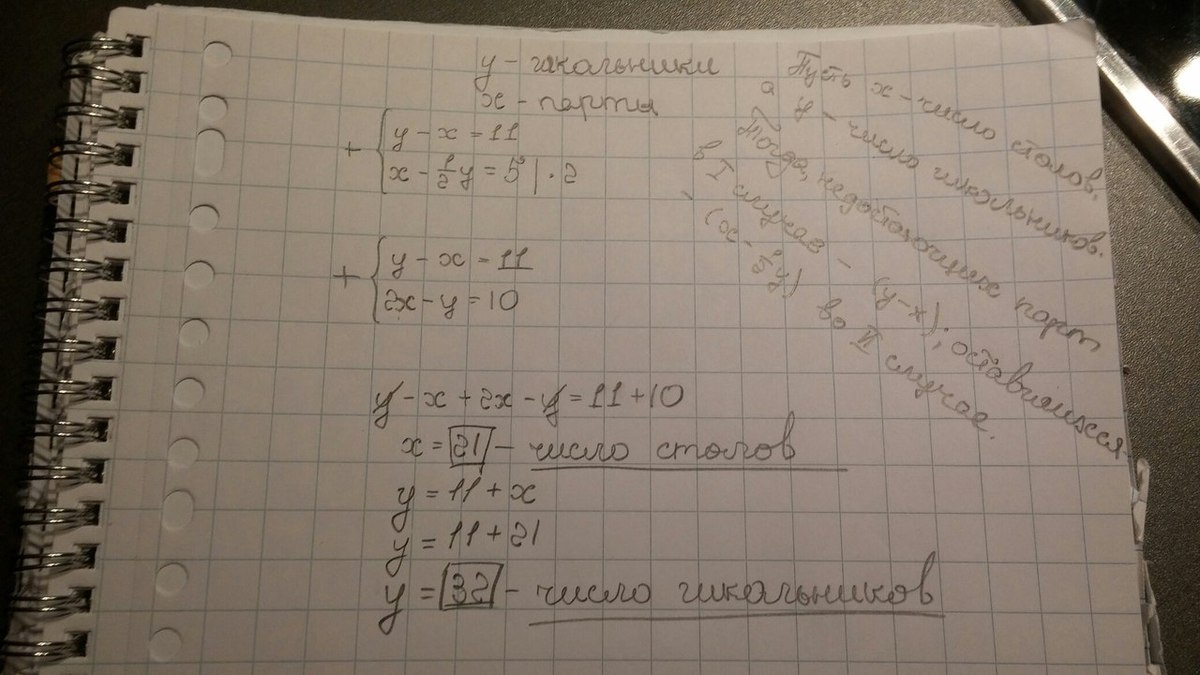 y - школьники
x - парты
+ { y - x = 11
x - 1/2 y = 5 | · 2
+ { y - x = 11
2x - y = 10
y - x + 2x - y = 11 + 10
x = 21 - число столов
y = 11 + x
y = 11 + 21
y = 32 - число школьников
Пусть x - число столов,
а y - число школьников.
Тогда, недостающих парт
в I случае - (y-x); оставшихся
- (x - 1/2 y) во II случае.